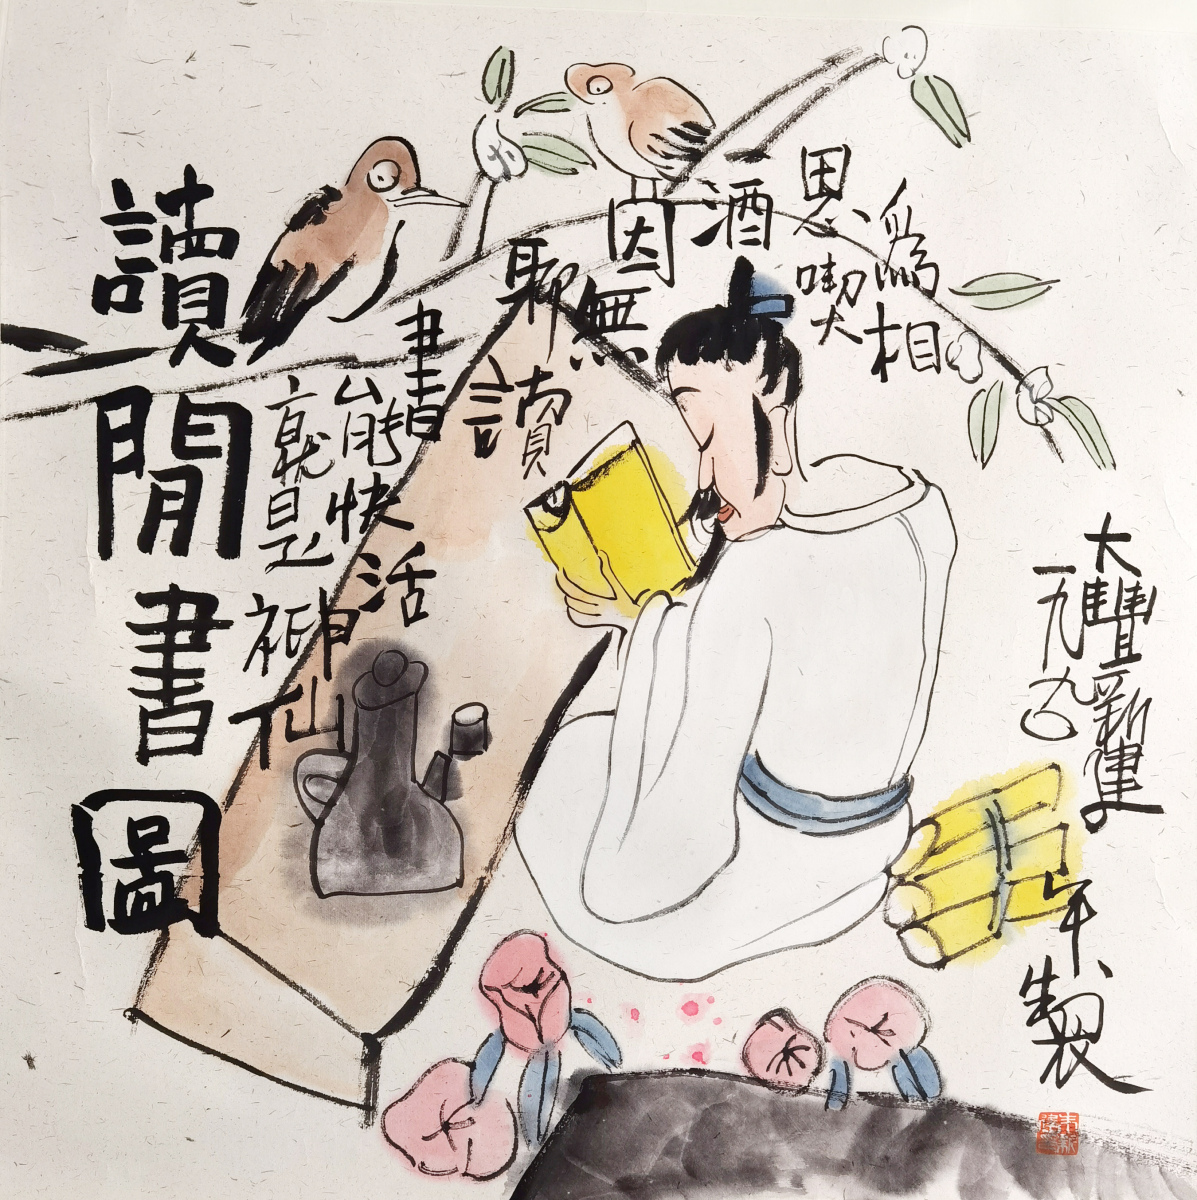 讀閒書圖
為相
思喫大
酒
因無
聊讀
書
能快活
就是神仙
大豐新建
一九九〇年製